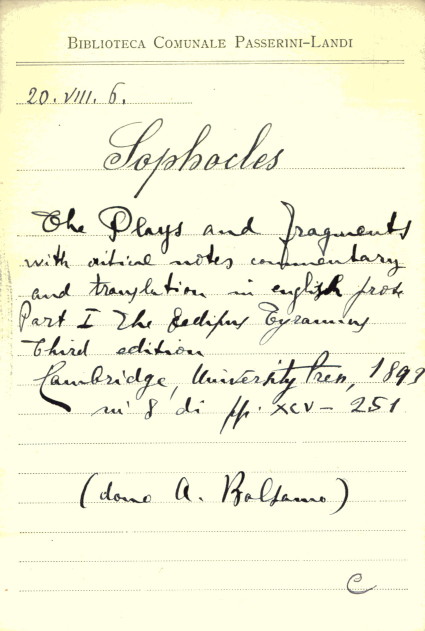 BIBLIOTECA COMUNALE PASSERINI-LANDI
20. VIII. 6.
Sophocles
The Plays and fragments
with critical notes commentary
and translation in english prose
Part I The Oedipus Tyrannus
Third edition
Cambridge, University Press, 1893
in 8 di pp. XCV - 251
(dono A. Balsamo)
C